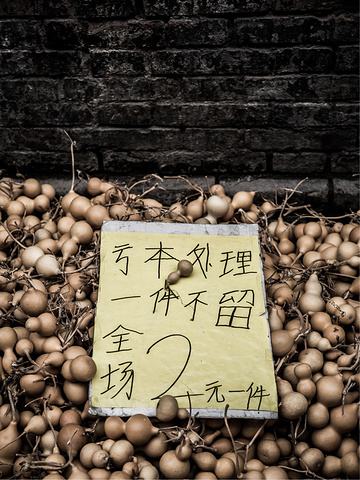 亏本处理
一件不留
全场2元一件